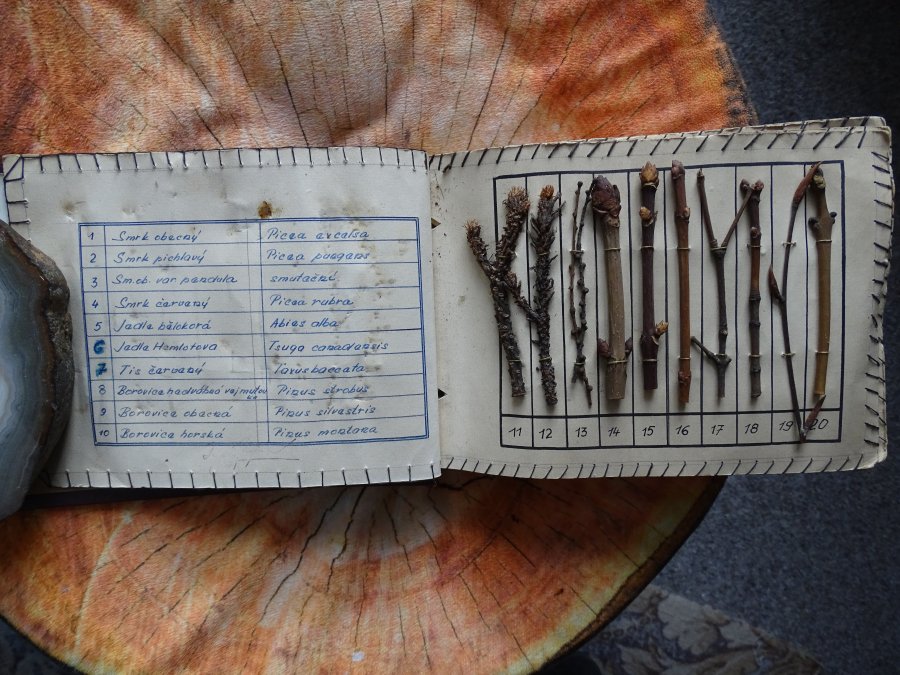 1 Smrk obecný Picea excelsa
2 Smrk pichlavý Picea pungens
3 Sm.ob. var pendula smuteční
4 Smrk červený Picea rubra
5 Jedle bělokorá Abies alba
6 Jedle Hemlotova Tsuga canadensis
7 Tis červený Taxus baccata
8 Borovice hedvábná vejmutov Pinus strobus
9 Borovice obecná Pinus silvestris
10 Borovice horská Pinus montana
11 12 13 14 15 16 17 18 19 20